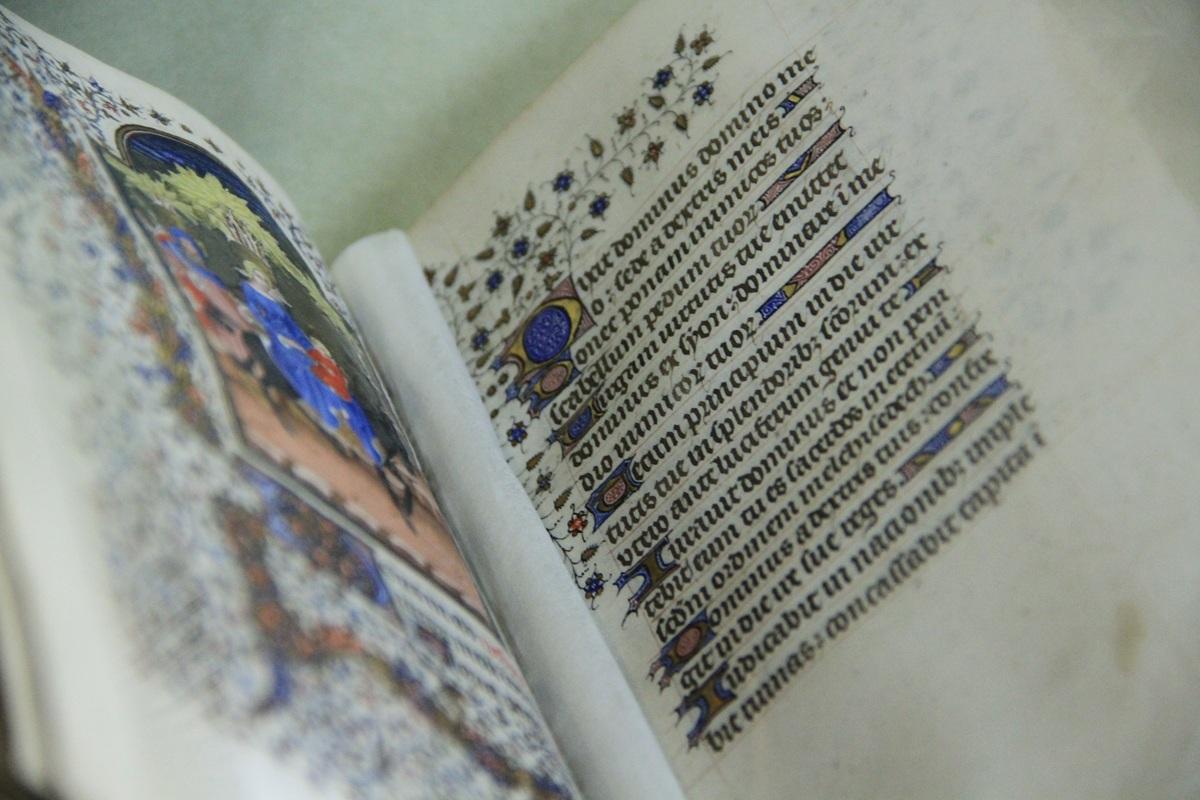 Dixit dominus domino me
o: sede a dextris meis
Donec ponam inimicos tuos:
scabellum pedum tuoꝝ
Uirgam uirtutis tue emittet
dominus ex syon: dominare i me
dio inimicoꝝ tuoꝝ
Tecum principium in die uir
tutis tue in splendoribꝫ scōꝝum: ex
utero ante luciferum genui te
Iurauit dominus et non peni
tebit eum tu es sacerdos in eternū:
scdm ordinem melchisedech
Dominus a dextris tuis: confre
git in die ire sue reges
Iudicabit in nacionibꝫ imple
bit ruinas: conquassabit capita i